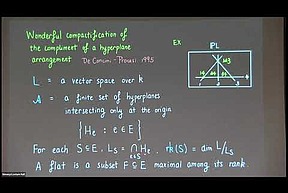 Wonderful compactification
of the complement of a hyperplane
arrangement De Concini - Procesi 1995
EX
L = a vector space over k
A = a finite set of hyperplanes
intersecting only at the origin
{ He : e ∈ E }
For each S ⊆ E, Ls = ∩ He, rk(S) = dim L/Ls
e∈S
A flat is a subset F ⊆ E maximal among its rank.